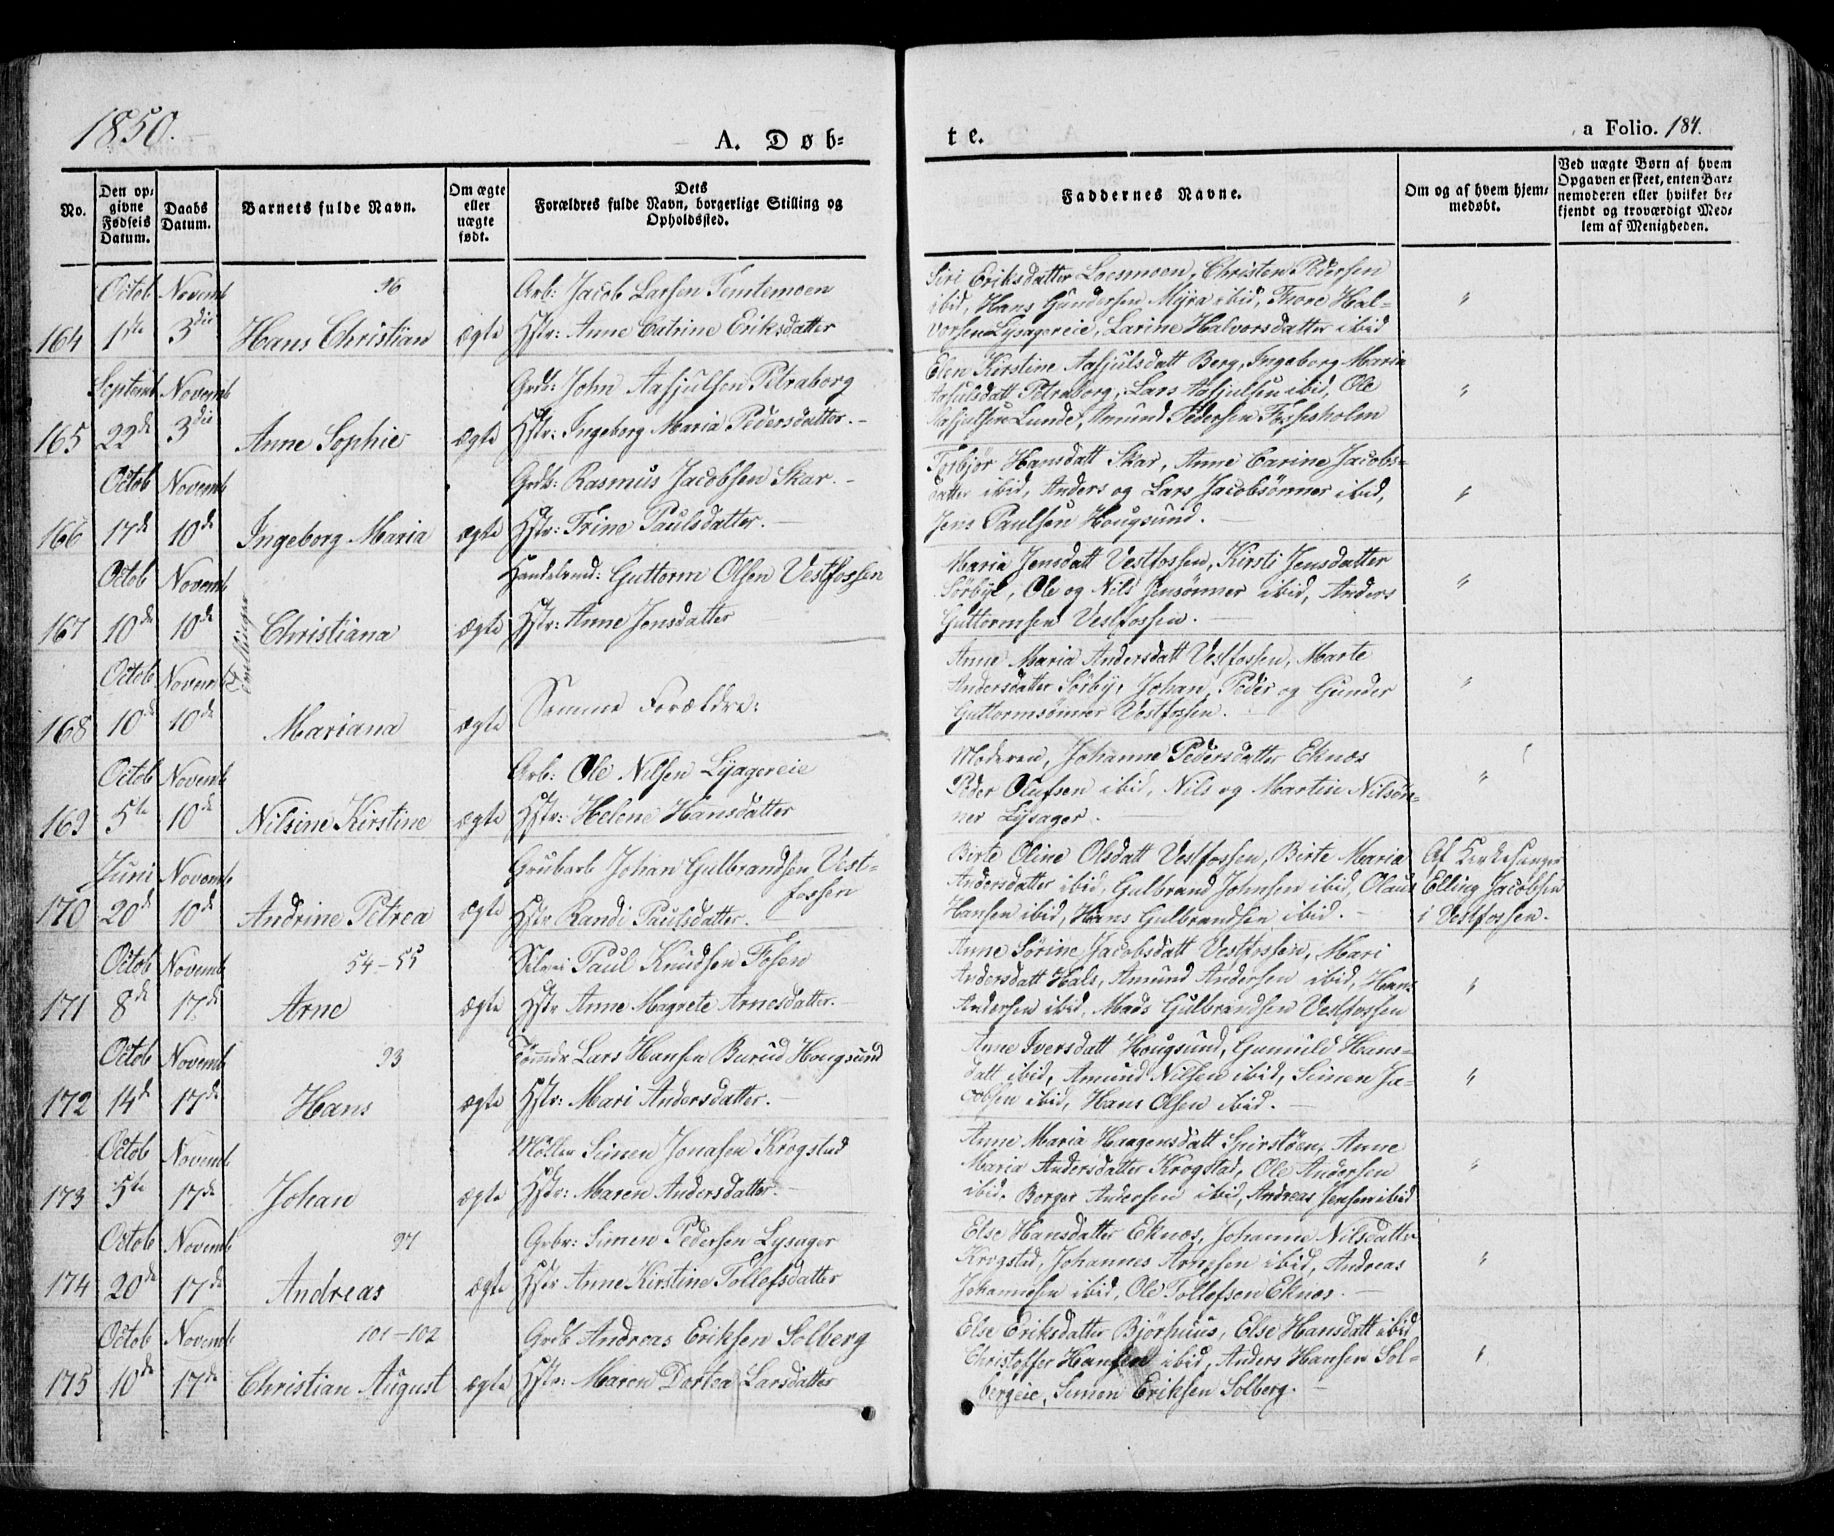 1850.
A. Døb-
te.
a Folio. 184.
No.
Den op-
givne
Fødsels
Datum.
Daabs
Datum.
Barnets fulde Navn.
Om ægte
eller
uægte
født.
Dets
Forældres fulde Navn, borgerlige Stilling og
Opholdssted.
Faddernes Navne.
Om og af hvem hjem-
medøbt.
Ved uægte Børn af hvem
Opgaven er skeet, enten Bar-
nemoderen eller hvilket be-
kjendt og troværdigt Med-
lem af Menigheden.
Octob Novemb 96 Arb: Jacob Larsen Temtemoen
164 1ste 3die Hans Christian ægte Hstr: Anne Catrine Eriksdatter
Siri Eriksdatter Loesmoen, Christen Pedersen
ibid, Hans Gundersen Myra ibid, Thore Hal-
vorsen Lysagereie, Larine Halvorsdatter ibid
"
Septemb Novemb Grdb: John Aasjulsen Petraborg
165 22de 3die Anne Sophie ægte Hstr: Ingeborg Maria Pedersdatter.
Elen Kirstine Aasjulsdatt Berg, Ingeborg Maria
Aasjulsdatt Petraborg, Lars Aasjulsen ibid, Ole
Aasjulsen Lunde, Amund Pedersen Fossesholm
"
Octob Novemb Grdb: Rasmus Jacobsen Skar.
166 17de 10de Ingeborg Maria ægte Hstr: Trine Paulsdatter.
Torbjør Hansdatt Skar, Anne Carine Jacobs-
datter ibid, Anders og Lars Jacobsønner ibid,
Jens Paulsen Hougsund.
"
Octob Novemb Handelsmd: Guttorm Olsen Vestfossen
167 10de 10de Tvillinger Christiana ægte Hstr: Anne Jensdatter
Maria Jensdatt Vestfossen, Kirsti Jensdatter
Sørbye, Ole og Nils Jensønner ibid, Anders
Guttormsen Vestfossen.
"
Octob Novemb
168 10de 10de Mariana ægte Samme Forældre:
Anne Maria Andersdatt Vestfossen, Marte
Andersdatter Sørby, Johan, Peder og Gunder
Guttormsønner Vestfossen.
"
Octob Novemb Arb: Ole Nilsen Lysagereie
169 5te 10de Nilsine Kirstine ægte Hstr: Helene Hansdatter
Moderen, Johanne Pedersdatter Eknæs
Peder Olufsen ibid, Nils og Martin Nilsøn-
ner Lysager.
"
Juni Novemb Grubarb Johan Gulbrandsen Vest-
fossen
170 20de 10de Andrine Petrea ægte Hstr Randi Paulsdatter.
Birte Oline Olsdatt Vestfossen, Birte Maria
Andersdatter ibid, Gulbrand Johnsen ibid, Olaus
Hansen ibid, Hans Gulbrandsen ibid.
Af Kirkesanger
Elling Jacobsen
i Vestfossen.
Octob Novemb 54-55 Paul Knudsen Fosen
171 8de 17de Arne ægte Hstr Anne Magrete Arnesdatter.
Anne Sørine Jacobsdatt Vestfossen, Mari
Andersdatt Hals, Amund Andersen ibid, Hans
Andersen ibid, Mads Gulbrandsen Vestfossen
"
Octob Novemb 93 Lars Hansen Burud Hougsund
172 14de 17de Hans ægte Hstr: Mari Andersdatter.
Anne Iversdatt Hougsund, Gunnild Hans-
datt ibid, Amund Nilsen ibid, Simen Ja-
cobsen ibid, Hans Olsen ibid.
"
Octob Novemb Møller Simen Jonasen Krogstad
173 5te 17de Johan ægte Hstr: Maren Andersdatter.
Anne Maria Haagensdatt Spirstøen, Anne
Maria Andersdatter Krogstad, Ole Andersen
ibid, Borger Andersen ibid, Andreas Jensen ibid
"
Octob Novemb 97 Grbr: Simen Pedersen Lysager
174 20de 17de Andreas ægte Hstr Anne Kirstine Tollefsdatter
Else Hansdatter Eknæs, Johanne Nilsdatter
Krogstad, Johannes Arnesen ibid, Andreas
Johannesen ibid, Ole Tollefsen Eknæs.
"
Octob Novemb 101-102 Grdb Andreas Eriksen Solberg
175 10de 17de Christian August ægte Hstr: Maren Dortea Larsdatter
Else Eriksdatter Bjørhuus, Else Hansdatt ibid
Christoffer Hansen ibid, Anders Hansen Sol-
bergeie, Simen Eriksen Solberg.
"